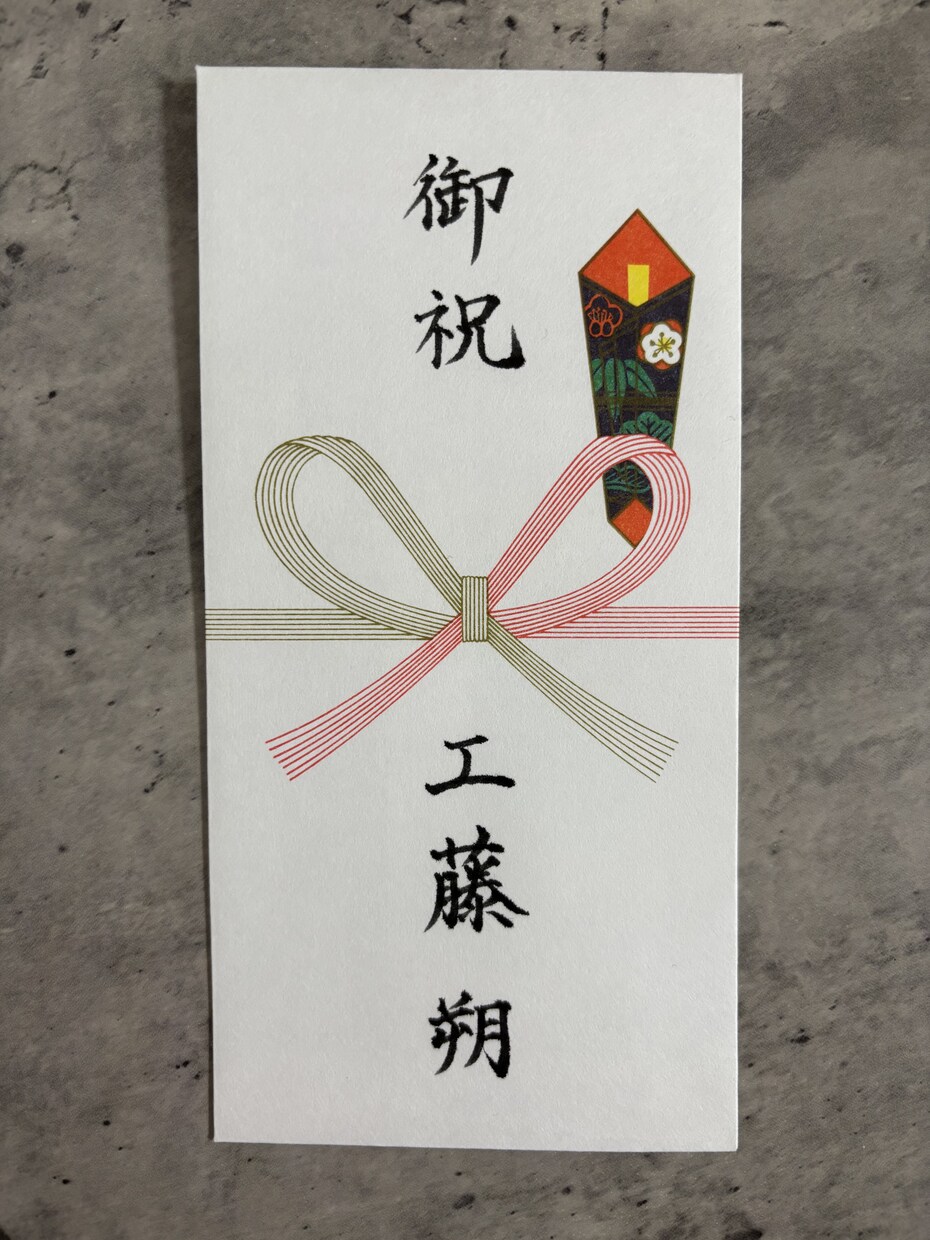 御祝
工藤朔